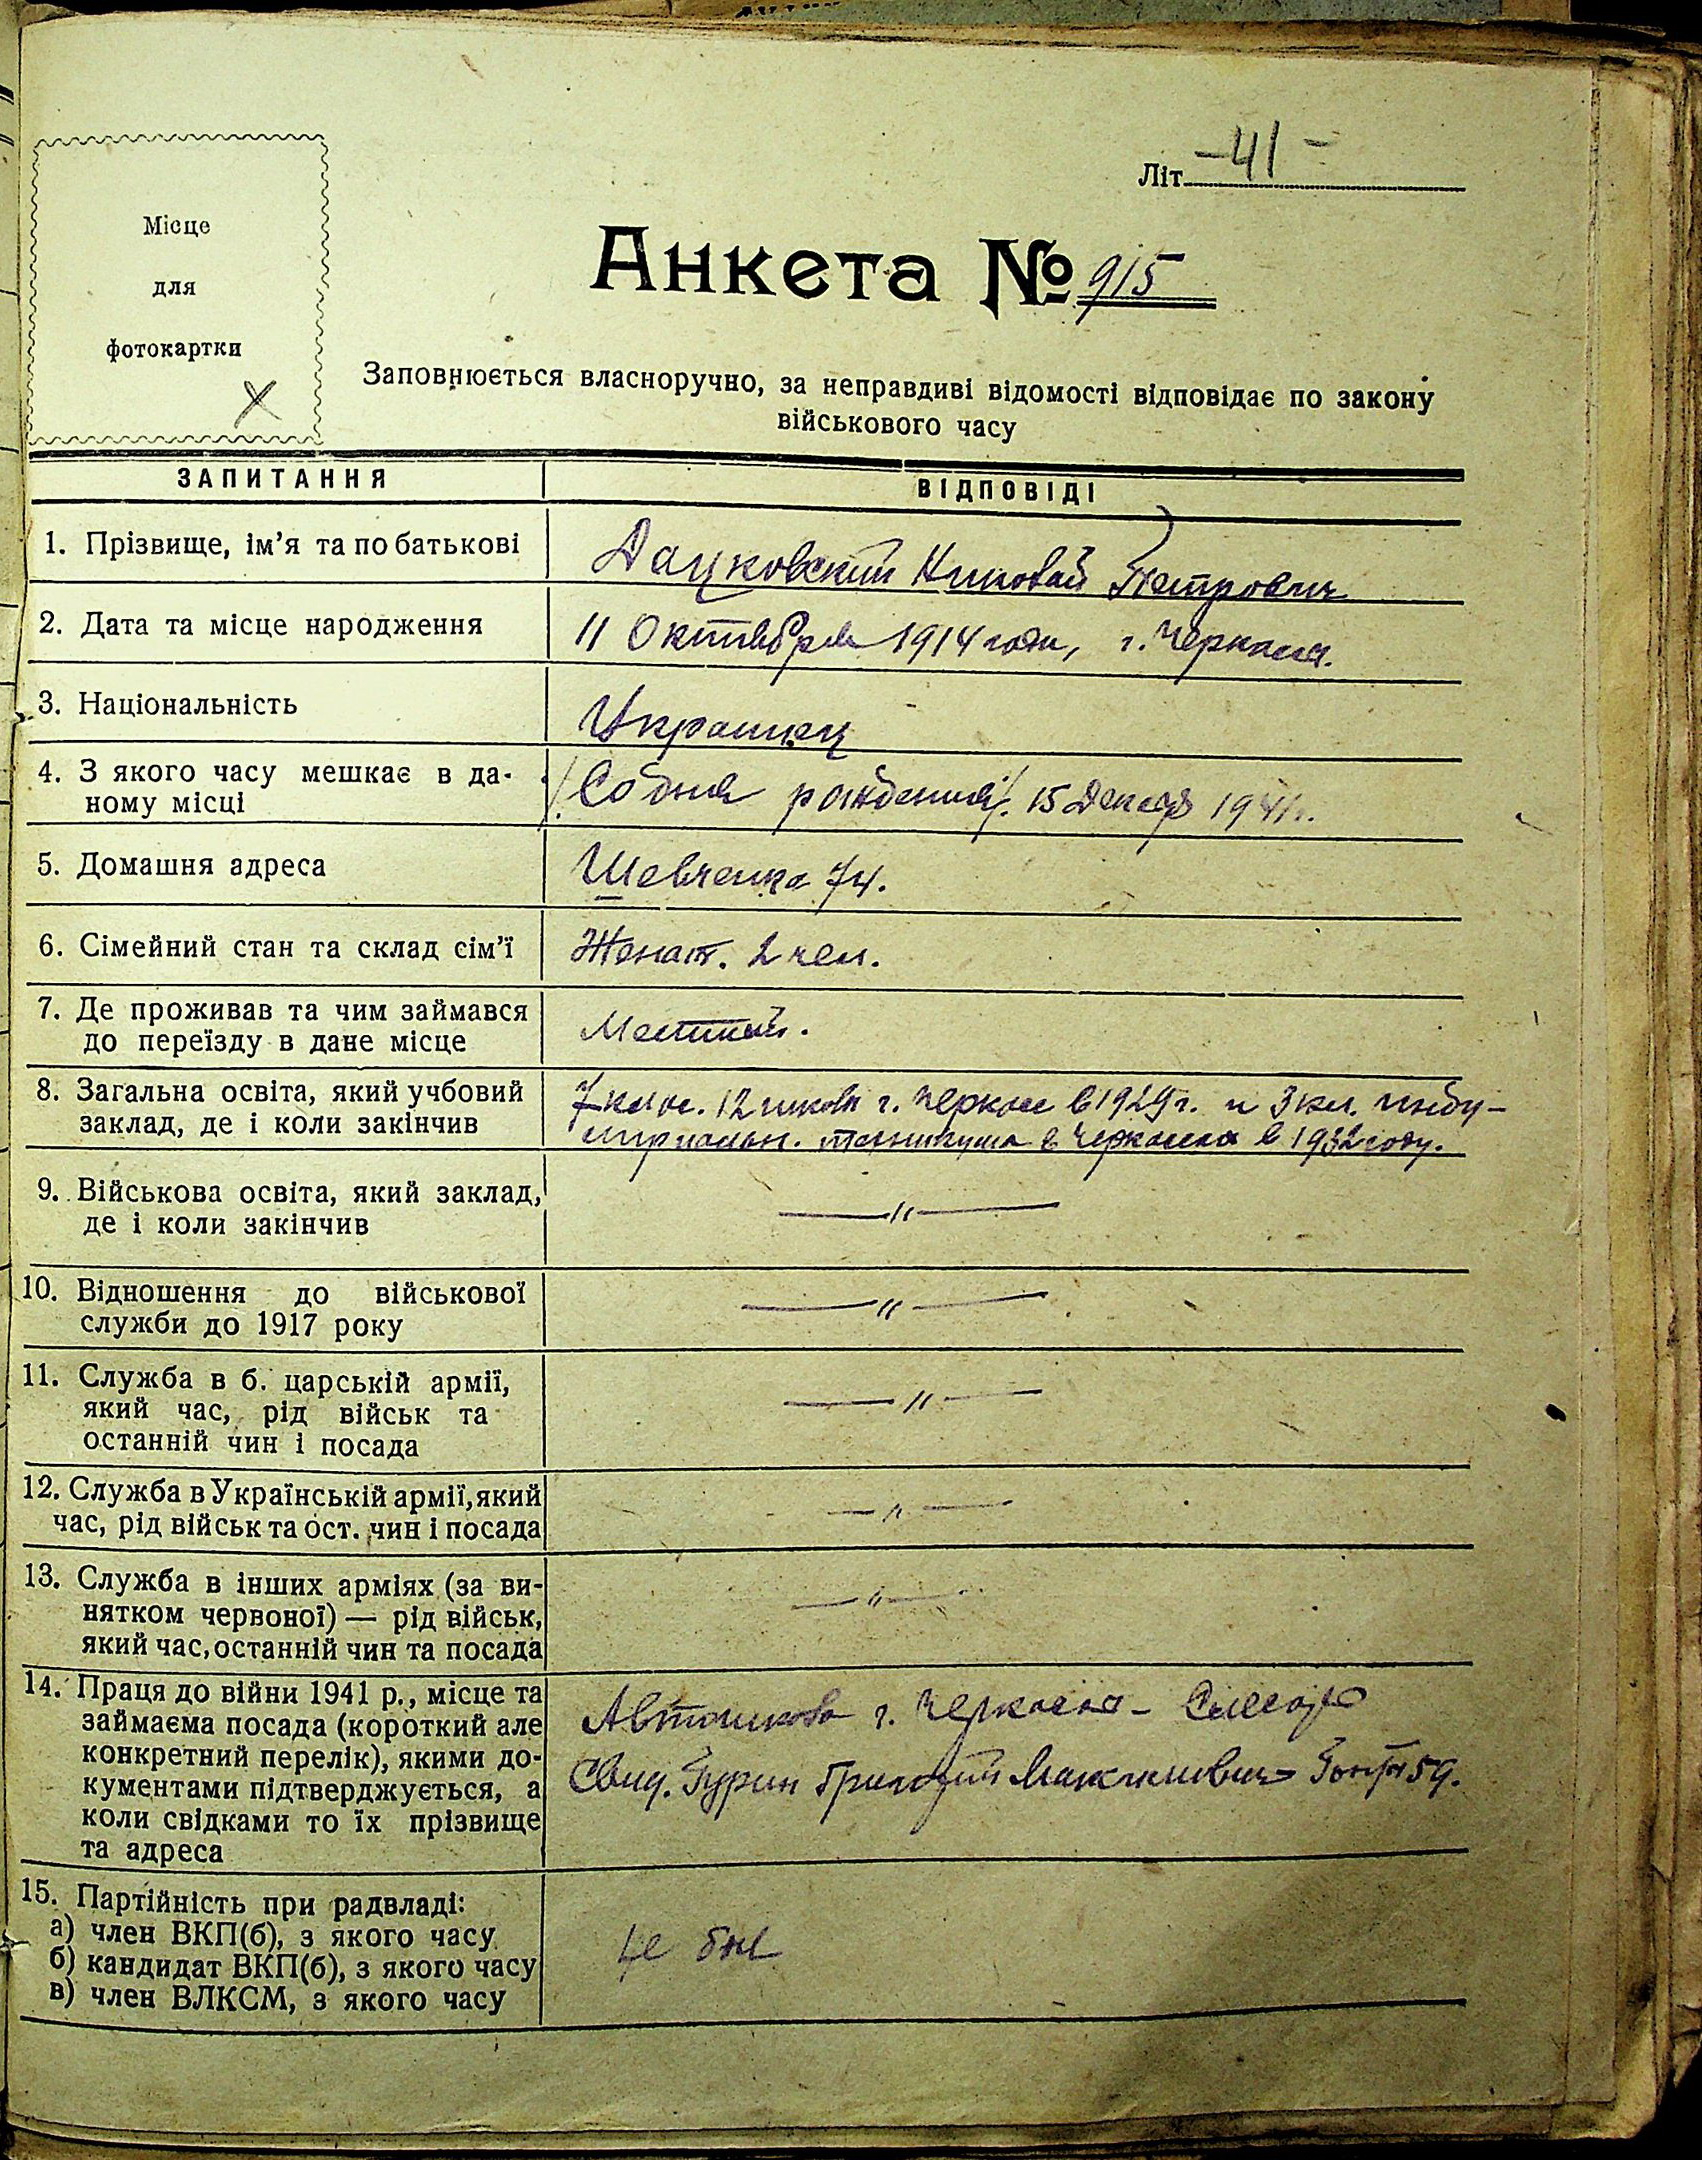 Літ. -41-
Місце
для
фотокартки
Анкета № 915
Заповнюється власноручно, за неправдиві відомості відповідає по закону
військового часу
ЗАПИТАННЯ
ВІДПОВІДІ
1. Прізвище, ім'я та по батькові
Дацковский Николай Петрович
2. Дата та місце народження
11 Октября 1914 года, г. Черкасы.
3. Національність
Украинец
4. З якого часу мешкає в да-
ному місці
/Со дня рождения/. 15 Декабр 1941 г.
5. Домашня адреса
Шевченка 74.
6. Сімейний стан та склад сім'ї
Женат. 2 чел.
7. Де проживав та чим займався
до переїзду в дане місце
Местный.
8. Загальна освіта, який учбовий
заклад, де і коли закінчив
7 клас. 12 школы г. Черкас в 1929 г. и 3 кл. инду-
стриальн. техникума в Черкассах в 1932 году.
9. Військова освіта, який заклад,
де і коли закінчив
—〃—
10. Відношення до військової
служби до 1917 року
—〃—
11. Служба в б. царській армії,
який час, рід військ та
останній чин і посада
—〃—
12. Служба в Українській армії, який
час, рід військ та ост. чин і посада
—〃—
13. Служба в інших арміях (за ви-
нятком червоної) — рід військ,
який час, останній чин та посада
—〃—
14. Праця до війни 1941 р., місце та
займаєма посада (короткий але
конкретний перелік), якими до-
кументами підтверджується, а
коли свідками то їх прізвище
та адреса
Автошкола г. Черкассы - Слесарь
Свид. Гурин Григорий Максимович 59.
15. Партійність при радвладі:
а) член ВКП(б), з якого часу
б) кандидат ВКП(б), з якого часу
в) член ВЛКСМ, з якого часу
не был